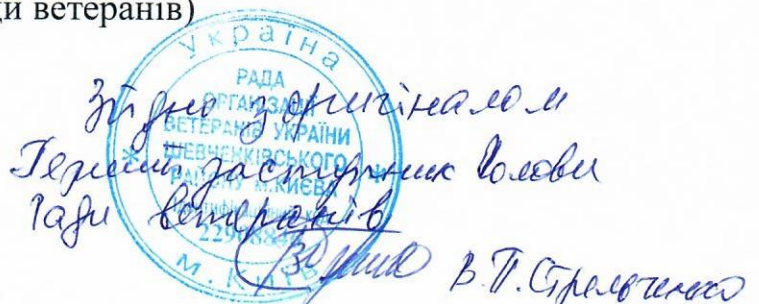 ди ветеранів)
Україна
РАДА
ОРГАНІЗАЦІЇ
ВЕТЕРАНІВ УКРАЇНИ
ШЕВЧЕНКІВСЬКОГО
РАЙОНУ М.КИЄВА
М. Київ
Згідно з оригіналом
Перший заступник Голови
Ради ветеранів
В.П. Стрельченко